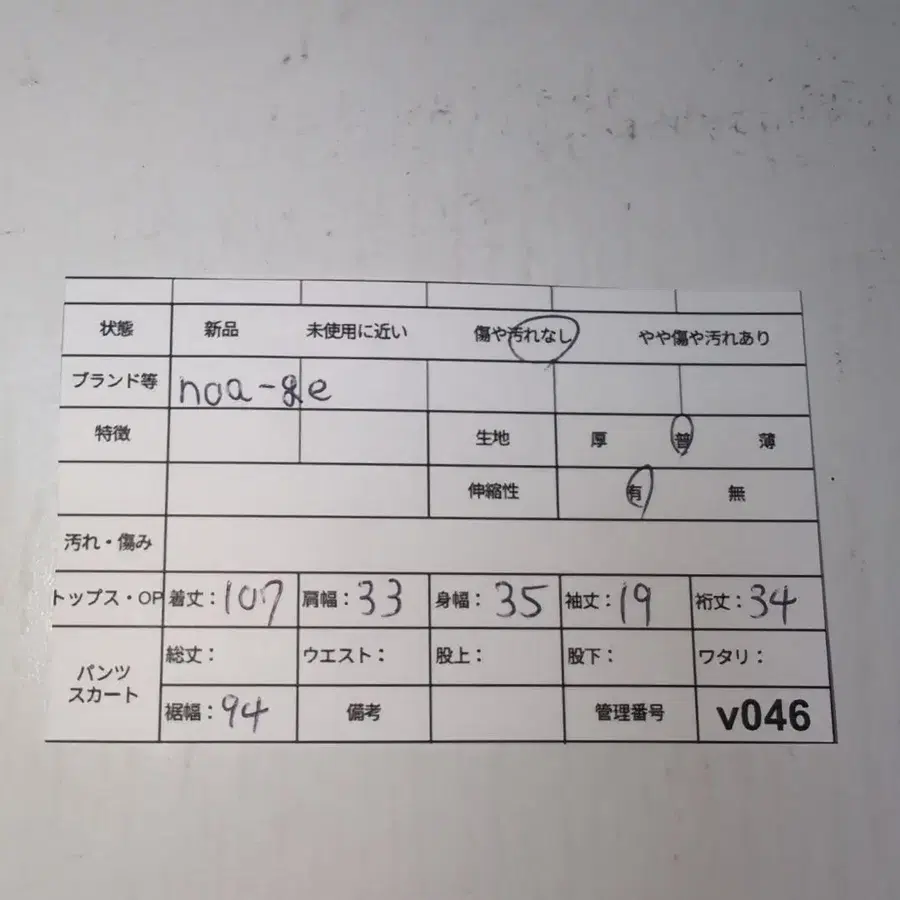 状態 新品 未使用に近い 傷や汚れなし やや傷や汚れあり
ブランド等 noa-ge
特徴 生地 厚 普 薄
伸縮性 有 無
汚れ・傷み
トップス・OP 着丈:107 肩幅:33 身幅:35 袖丈:19 裄丈:34
パンツ スカート 総丈: ウエスト: 股上: 股下: ワタリ:
裾幅:94 備考 管理番号 v046